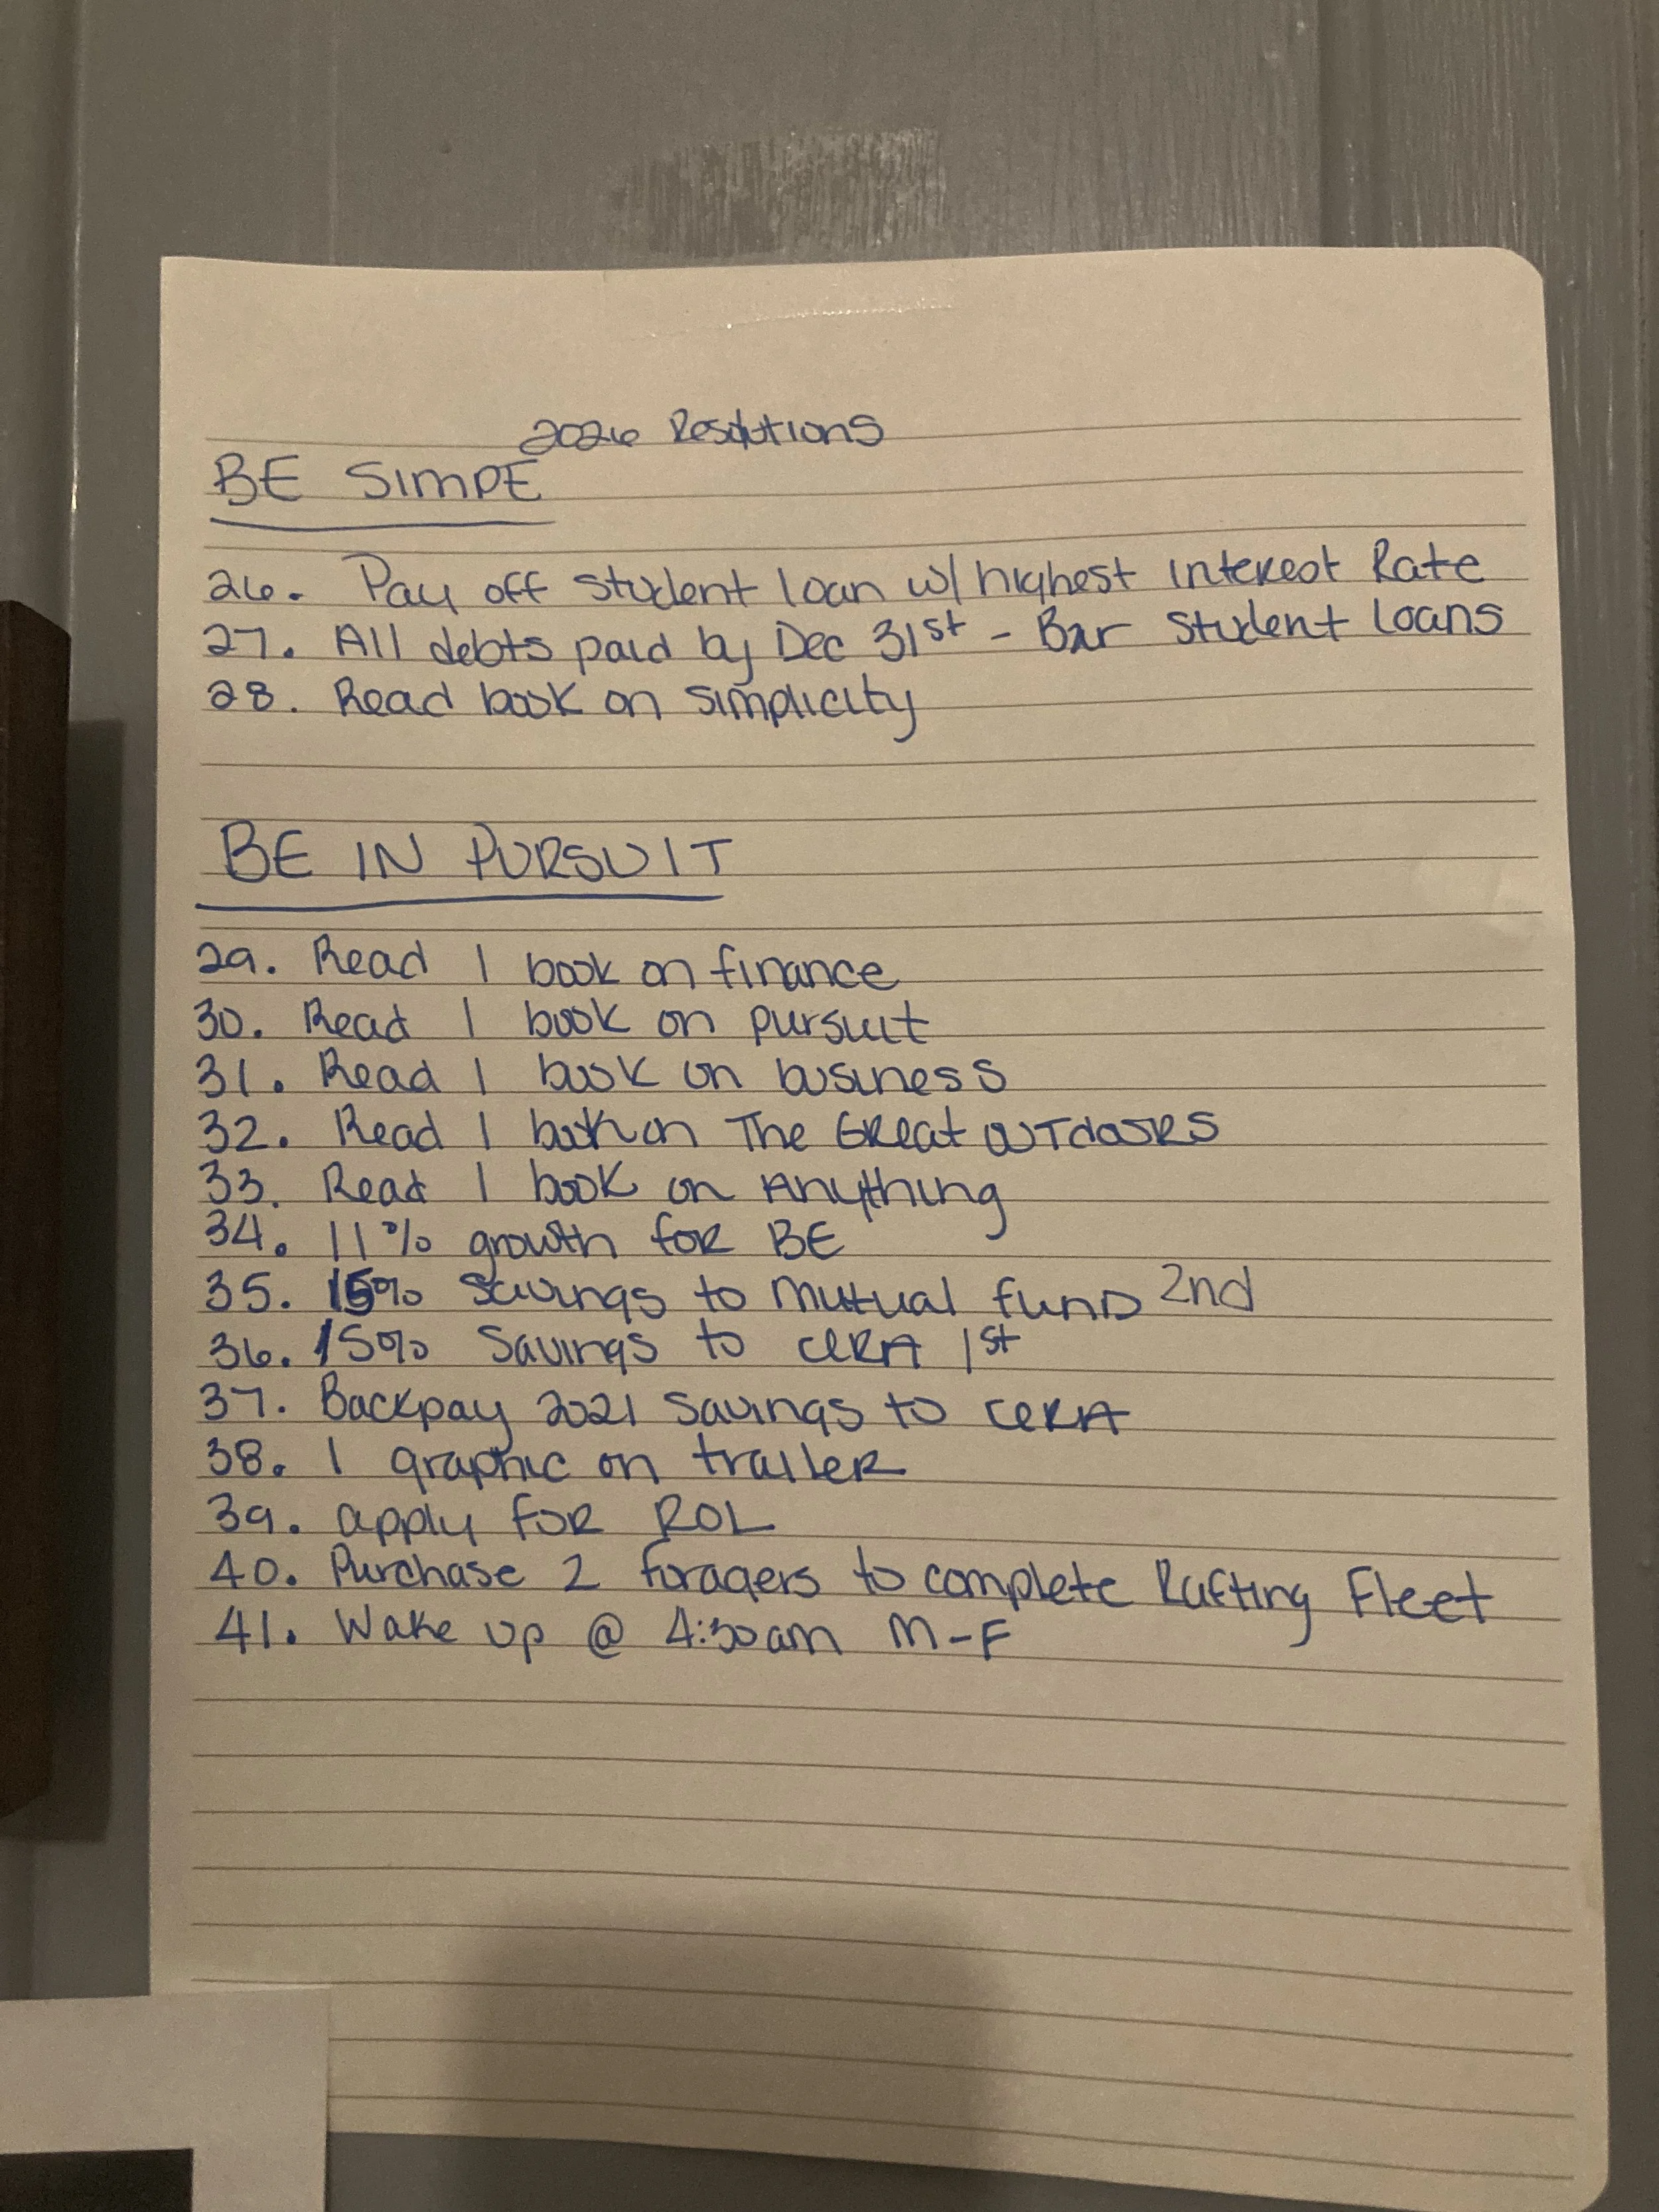 2026 Resolutions
BE SIMPE
26. Pay off student loan w/ highest interest Rate
27. All debts paid by Dec 31st - Bar Student Loans
28. Read book on simplicity
BE IN PURSUIT
29. Read 1 book on finance
30. Read 1 book on pursuit
31. Read 1 book on business
32. Read 1 book on The Great outdoors
33. Read 1 book on Anything
34. 11% growth for BE
35. 15% Savings to mutual fund 2nd
36. 15% Savings to CERA 1st
37. Backpay 2021 Savings to CERA
38. 1 graphic on trailer
39. apply for ROL
40. Purchase 2 foragers to complete Rafting Fleet
41. Wake up @ 4:30am M-F